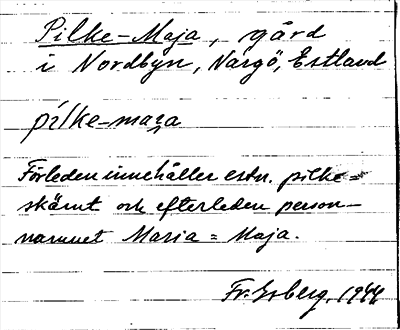 Pilke-Maja, gård
i Nordbyn, Nargö, Estland
pilke-maja
Förleden innehåller estn. pilke =
skämt och efterleden person-
namnet Maria = Maja.
Fr. 1944